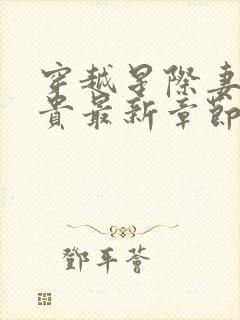 穿越星際妻
貴最新章節
鄧平薈